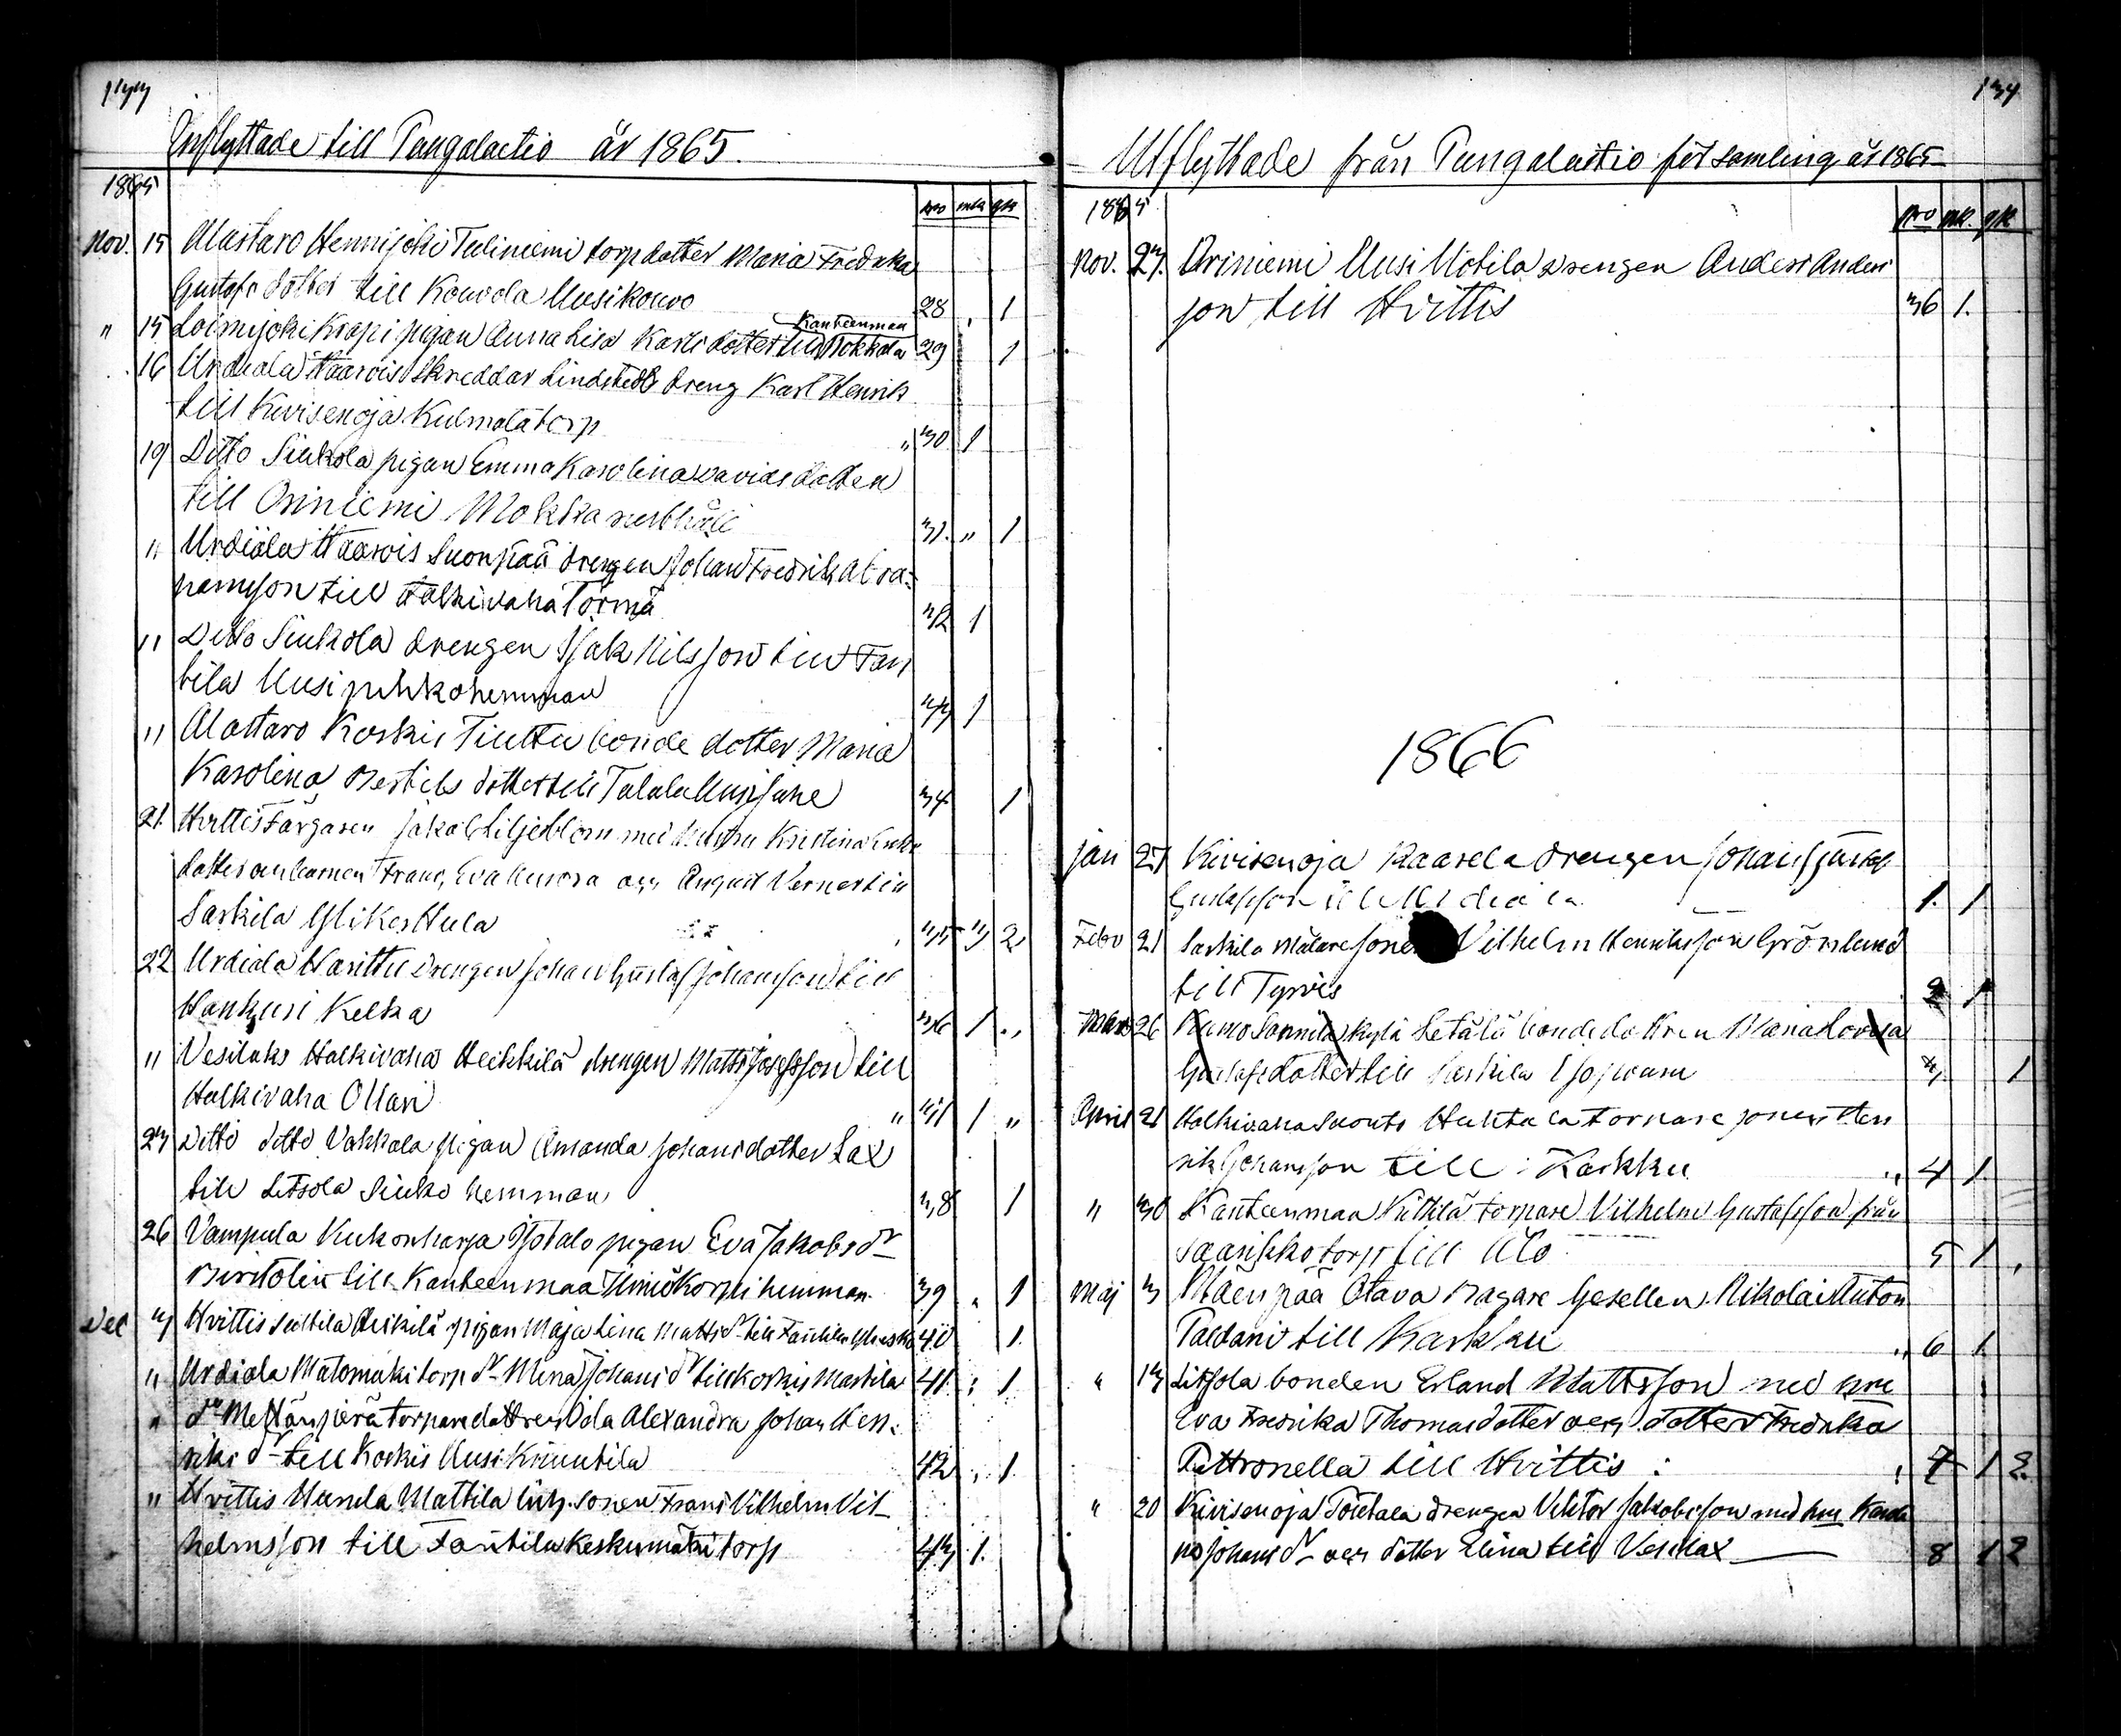 133
Inflyttade till Pungalaitio år 1865.
1865
Nro mk qk
Nov. 15 Alastaro Hennijoki Tuliniemi torp dotter Maria Fredrika
Gustafs dotter till Kouvola Uusikouvo 28 , 1
" 15 Loimijoki Krapi pigan Anna Lisa Karls dotter till Kanteenmaa Pokkala 29 1
16 Urdiala Haarois Skreddar Lindstedts dreng Karl Henrik
till Kivisenoja Kulmala torp " 30 1
19 Ditto Siukola pigan Emma Karolina Davids dotter
till Oriniemi Mokka 31. " 1
" Urdiala Haarois Suonpää drengen Johan Fredrik Abra-
hamsson till Halkivaha Törmä 32 1
" Ditto Siukola drengen Isak Nilsson till Tan
tila Uusi hemman 33 1
" Alastaro Koskis Tiuttu bonde dotter Maria
Karolina Bertils dotter till Talala Uusi 34 1
21. Hvittis Färgaren Jakob Liljeblom med hustru Kristina
dotter och barnen Frans, Eva Aurora och August Verner till
Sarkila Yliker Hula 35 3 2
22 Urdiala drengen Johan Gustaf Johansson till
Hankuri Kelka 36 1 "
" Vesilaks Halkivaha Heikkilä drengen Matts Josefsson till
Halkivaha Ollari " 37 1 "
23 Ditto ditto Vahkala pigan Amanda Johans dotter Lax
till Litsola Siuko hemman 38 1
26 Vampula Kukonharja Isotalo pigan Eva Jakobs dr
till Kanteenmaa Korpi hemman. 39 " 1
Dec 3 Hvittis Suttila pigan Maja Lina Matts dr till 40 1.
" Urdiala Matomäki torp dr Mina Johans dr till Koskis Marttila 41. : 1
" dr Metsänperä torpare dottren Ida Alexandra Johan Hen-
riks dr till Koskis Uusi Knuutila 42 , 1.
" Hvittis Hunda Mattila inh. sonen Frans Vilhelm Vil-
helmsson till Tantila Keskumäki torp 43 1.
134
Utflyttade från Pungalaitio församling år 1865
1865
Nro mk. qk
Nov. 27. Oriniemi Uusi Uotila drengen Anders Anders
son till Hvittis 36 1.
1866
Jan 27 Kivisenoja Raasela drengen Johan Gustaf
Gustafsson till Urdiala 1. 1
Febr 21 Sarkila Målare sonen Vilhelm Henriksson Grönlund
till Tyrvis 2 1
Mars 26 Kumo Sonnila kylä Setälä bonde dottren Maria Lovisa
Gustafs dotter till Sarkila 3 1
April 21 Halkivaha Suonto Huhtala torpare sonen Hen
rik Johansson till : Karkku " 4 1
" 30 Kanteenmaa Kittilä torpare Vilhelm Gustafsson från
Saarikko torp till Åbo 5 1 ,
Maj 3 Mäenpää Otava Bagare Gesellen Nikolai Anton
Paldani till Karkku " 6 1
" 13 Litsola bonden Erland Mattsson med
Eva Fredrika Thomas dotter och dotter Fredrika
Pettronella till Hvittis : , 7 1 2.
" 20 Kivisenoja Töytala drengen Viktor Jakobsson med hu Karoli
na Johans dr och dotter Elina till Vesilax 8 1 2